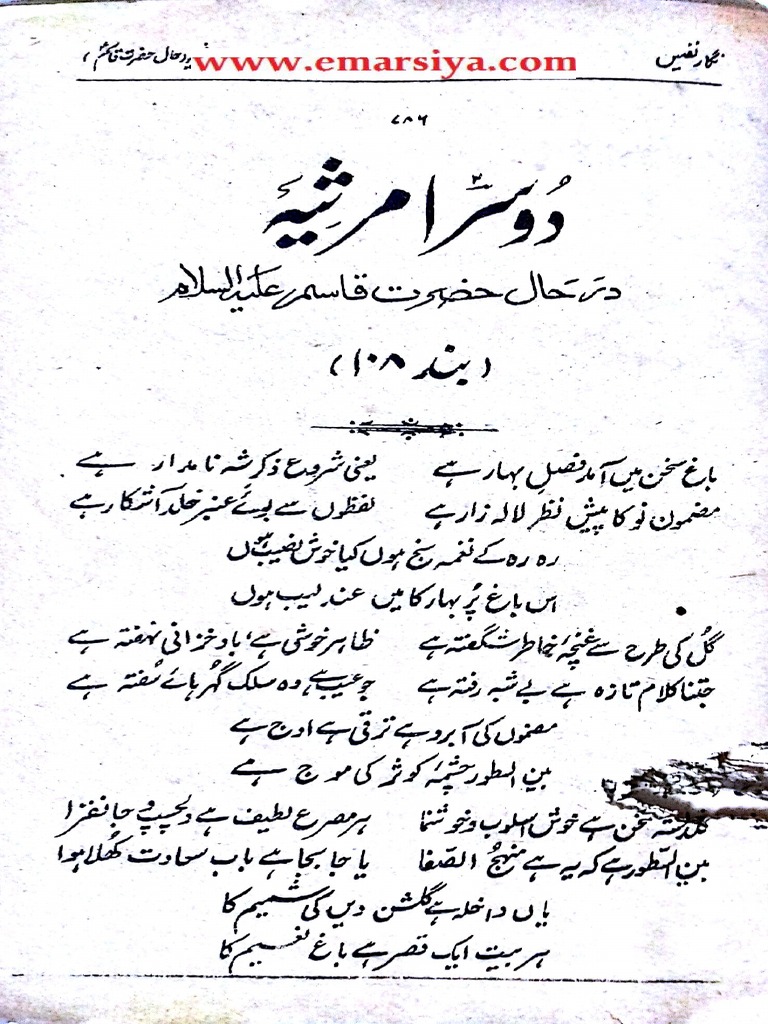 نگار نفیس www.emarsiya.com در حال حضرت قاسمؑ
۷۸۶
دُوسرا مرثیہ
در حال حضرت قاسم علیہ السلام
(بند ۱۰۸)
باغ سخن میں آمد فصلِ بہار ہے یعنی شروع ذکر شہ نامدار ہے
مضمون نو کا پیش نظر لالہ زار ہے لفظوں سے بوئے عنبر خلد آشکار ہے
رہ رہ کے نغمہ سنج ہوں کیا خوش نصیب ہوں
اس باغ پُر بہار کا میں عندلیب ہوں
گُل کی طرح سے غنچۂ خاطر شگفتہ ہے ظاہر خوشی ہے، باد خزانی نہفتہ ہے
جتنا کلام تازہ ہے بے شبہ رفتہ ہے جو عیب ہے وہ سلک گہر ہائے سُفتہ ہے
مضموں کی آبرو ہے ترقی ہے اوج ہے
بین السطور چشمۂ کوثر کی موج ہے
گلدستہ سخن ہے خوش اسلوب و خوشنما ہر مصرع لطیف ہے دلچسپ و جانفزا
بین السّطور ہے کہ یہ ہے منہج الصّفا یا جا بجا ہے باب سعادت کھُلا ہوا
یاں داخلہ ہے گلشن دیں کی شمیم کا
ہر بیت ایک قصر ہے باغ نعیم کا